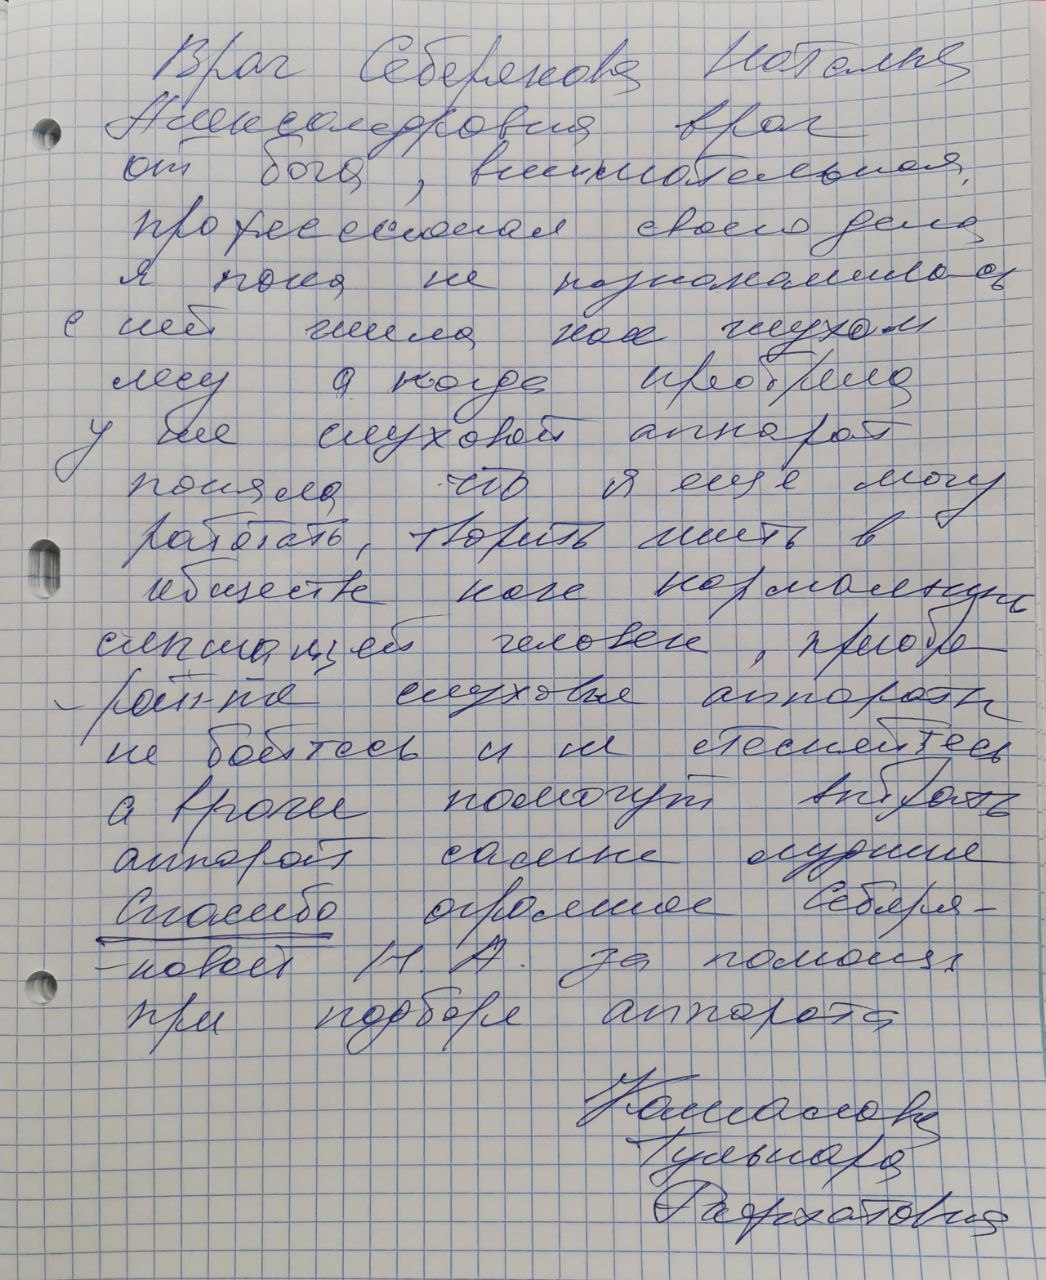 Врач Себерякова Наталия
Александровна врач
от бога, внимательная,
профессионал своего дела
я пока не познакомилась
с ней жила как глухом
лесу а когда преобрела
у вас слуховой аппарат
поняла что я еще могу
работать, творить жить в
обществе как нормальный
слышащей человек, приобре
- райте слуховые аппараты
не бойтесь и не стесняйтесь
а врачи помогут выбрать
аппарат самые лучшие
Спасибо огромное Себеря-
-новой Н. А. за помощь
при подборе аппарата
Гульнара